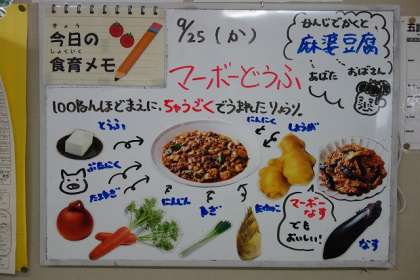 きょう
今日の
しょくいく
食育メモ
9/25 (か)
かんじでかくと
麻婆豆腐
あばた おばさん
マーボーどうふ
100ねんほどまえに、ちゅうごくでうまれたりょうり。
とうふ
にんにく
しょうが
ぶたにく
たまねぎ
にんじん
ねぎ
たけのこ
マーボー
なす
でも
おいしい!
なす